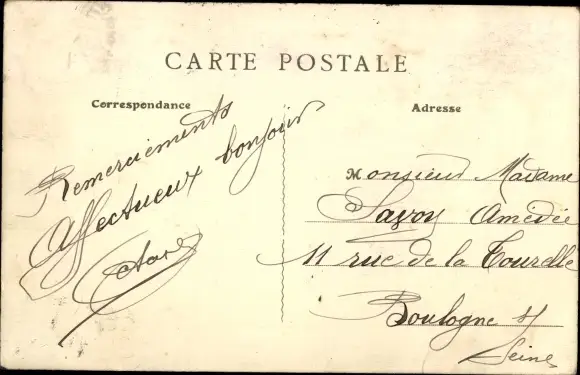 CARTE POSTALE
Correspondance
Adresse
Remerciements
Affectueux bonjour
Monsieur Madame
Savoy Amédée
11 rue de la Tourelle
Boulogne s/
Seine